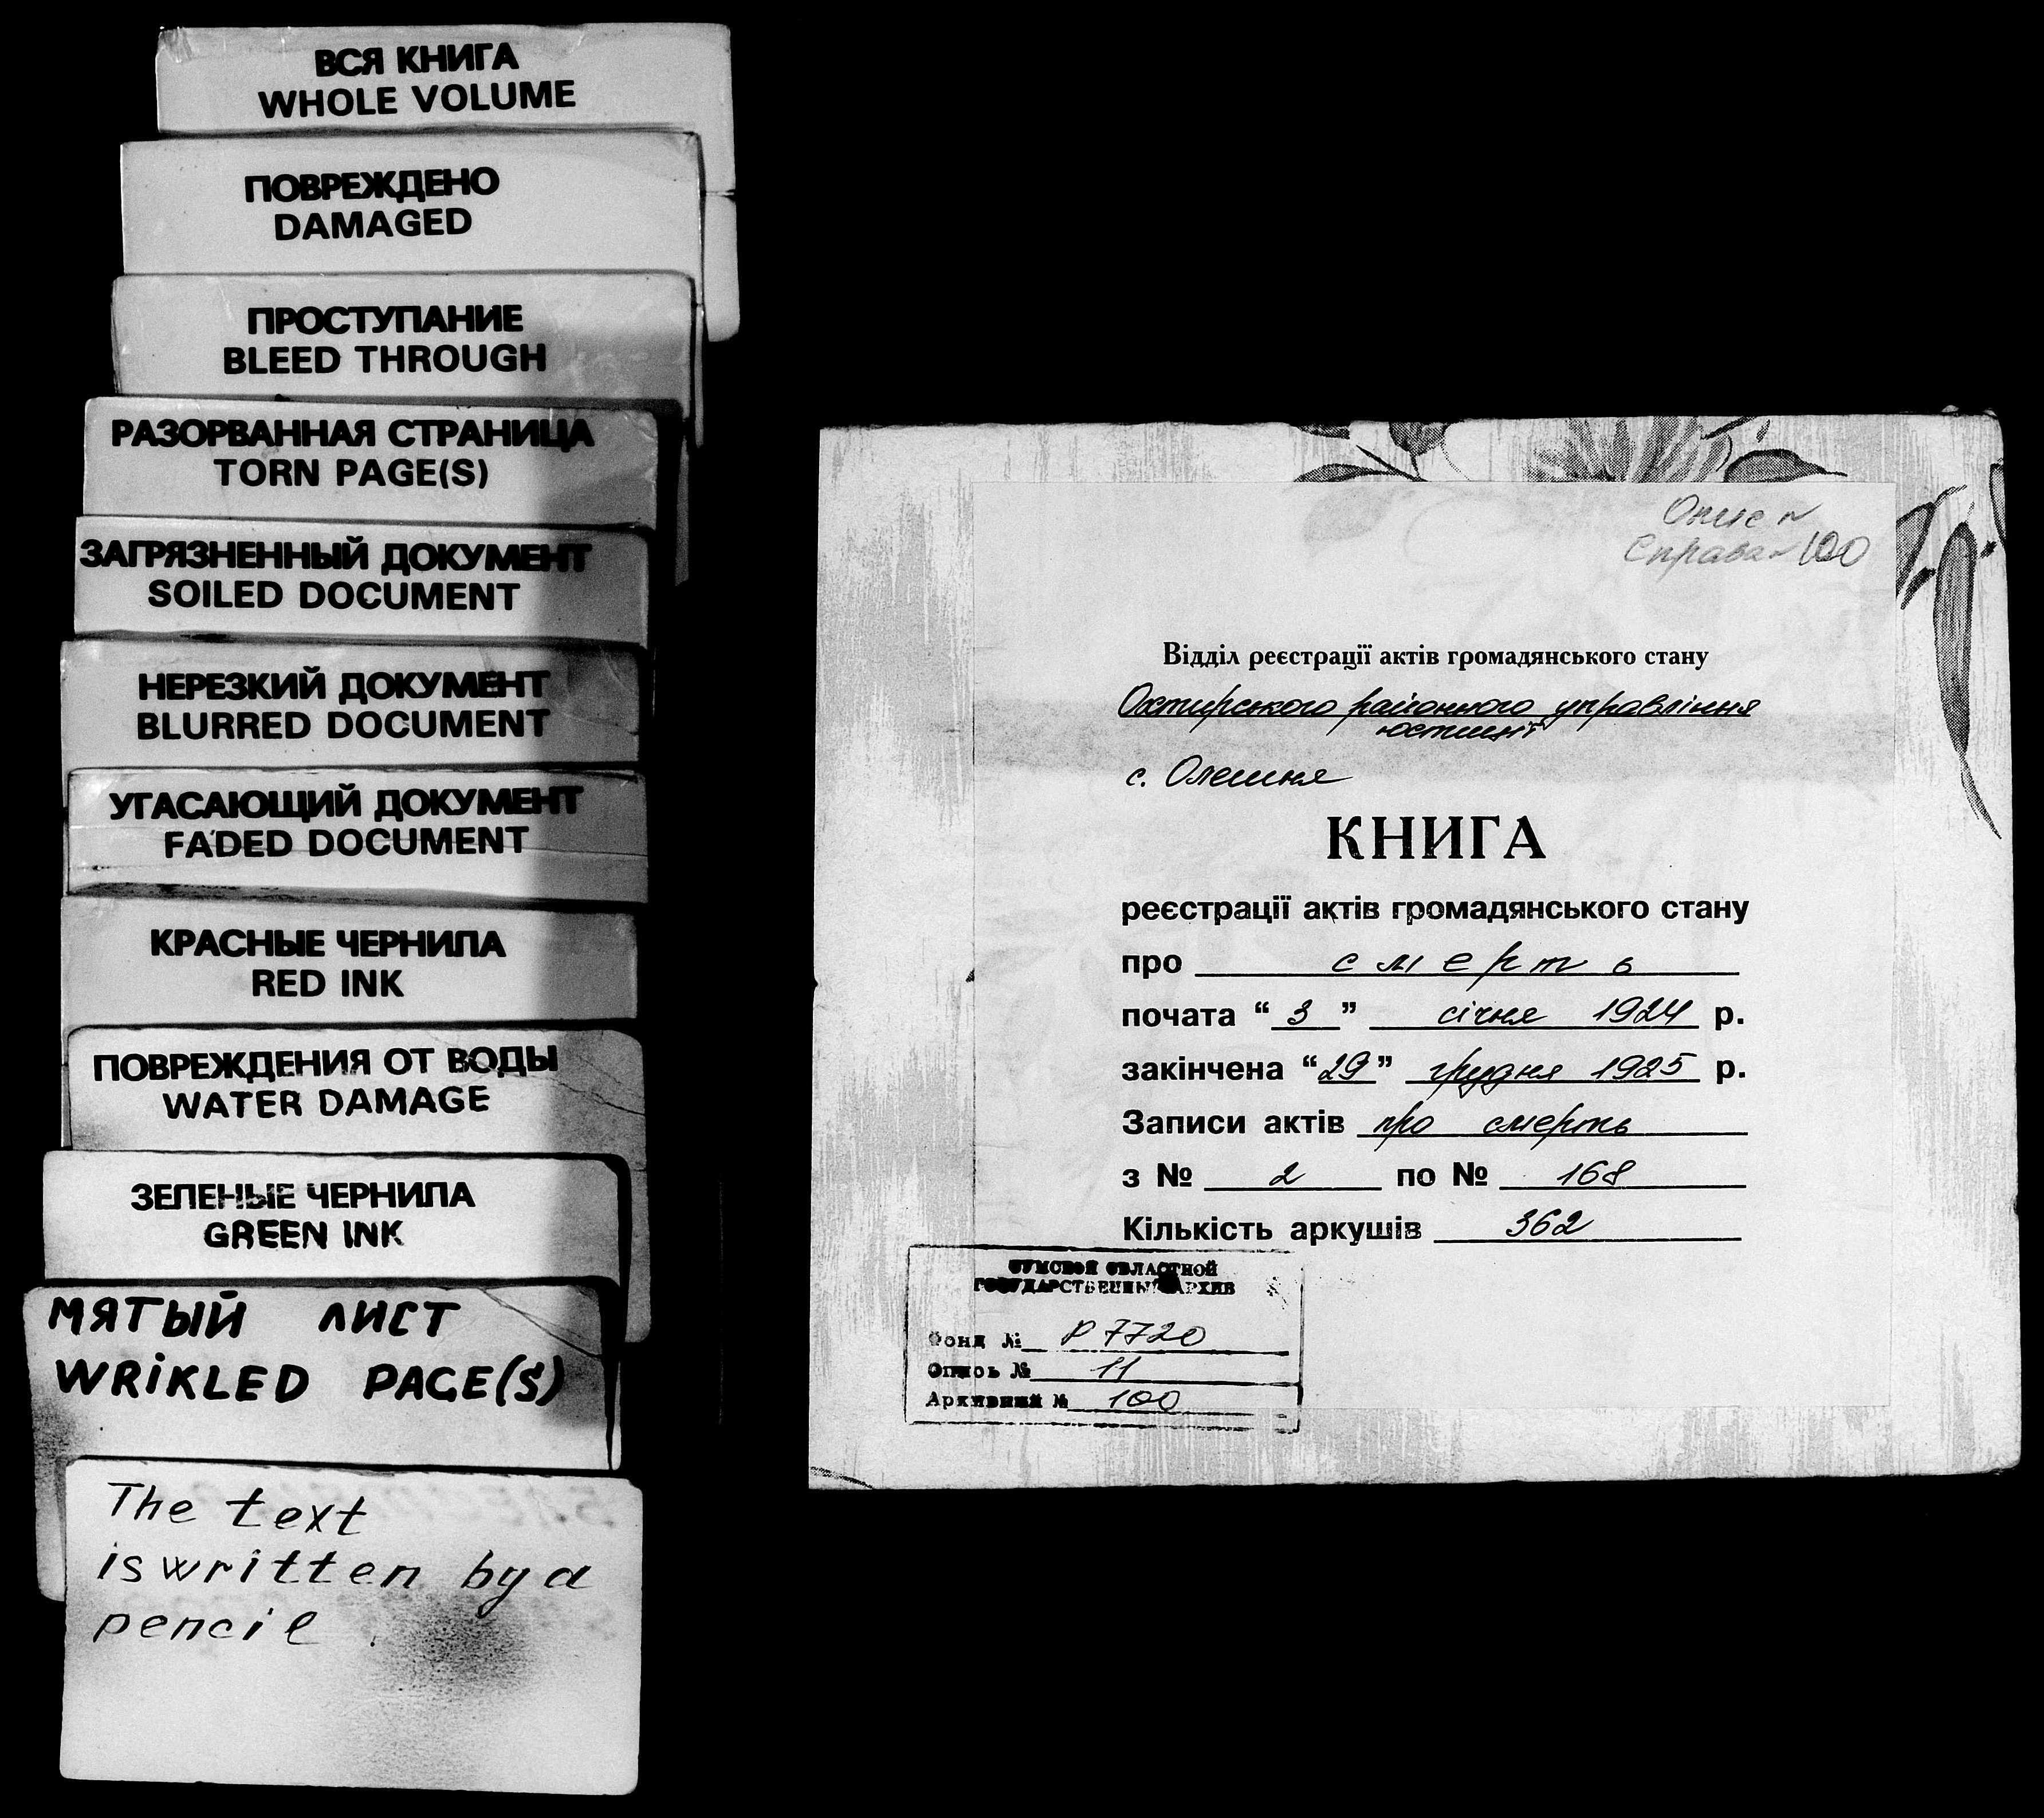 ВСЯ КНИГА
WHOLE VOLUME
ПОВРЕЖДЕНО
DAMAGED
ПРОСТУПАНИЕ
BLEED THROUGH
РАЗОРВАННАЯ СТРАНИЦА
TORN PAGE(S)
ЗАГРЯЗНЕННЫЙ ДОКУМЕНТ
SOILED DOCUMENT
НЕРЕЗКИЙ ДОКУМЕНТ
BLURRED DOCUMENT
УГАСАЮЩИЙ ДОКУМЕНТ
FADED DOCUMENT
КРАСНЫЕ ЧЕРНИЛА
RED INK
ПОВРЕЖДЕНИЯ ОТ ВОДЫ
WATER DAMAGE
ЗЕЛЕНЫЕ ЧЕРНИЛА
GREEN INK
МЯТЫЙ ЛИСТ
WRIKLED PAGE(S)
The text
is written by a
pencil
Опис №
Справа № 100
Відділ реєстрації актів громадянського стану
Охтирського районного управління
юстиції
с. Олешня
КНИГА
реєстрації актів громадянського стану
про смерть
почата “3” січня 1924 р.
закінчена “29” грудня 1925 р.
Записи актів про смерть
з № 2 по № 168
Кількість аркушів 362
СУМСКОЙ ОБЛАСТНОЙ
ГОСУДАРСТВЕННЫЙ АРХИВ
Фонд № Р 7720
Опись № 11
Архивный № 100